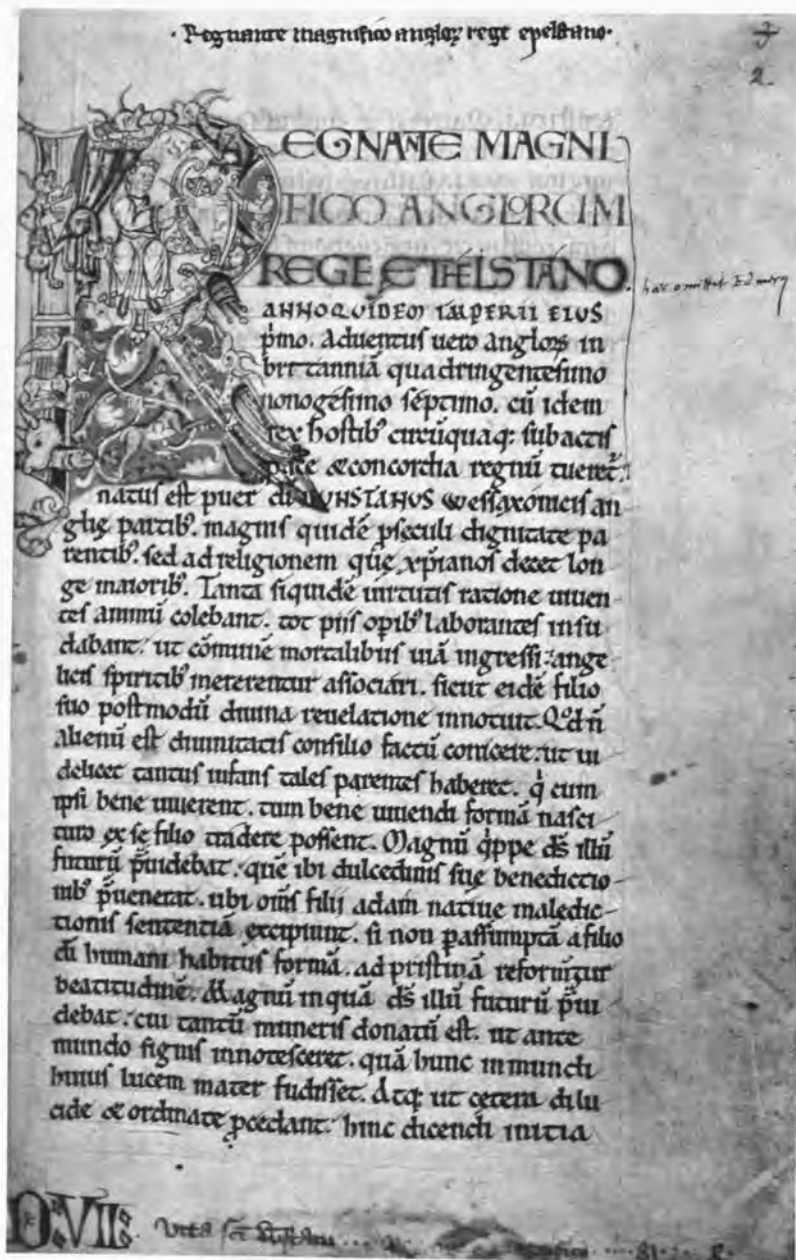 · Regnante magnifico angloꝝ rege eþelstano·
3
2
REGNANTE MAGNI
FICO ANGLORUM
REGE ETHELSTANO.
hæc omittit Edmerꝰ
ANNO QUIDEM IMPERII EIUS
p̄mo. Aduentus uero angloꝝ in
brittanniā quadringentesimo
nonogesimo séptimo. cū idem
rex hostib; circūquaq; subactis
pace &concordia regnū tueret᷑.
natus est puer DUNSTANUS Wessaxonicis an
glię partib;. magnis quidē ꝓseculi dignitate pa
rentib;. sed ad religionem quę xp̄ianos decet lon
ge maiorib;. Tanta siquidē uirtutis ratione uiuen
tes animū colebant. tot piis opib; laborantes insu
dabant. ut cōmunē mortalibus uiā ingressi. ange
licis spiritib; mererentur associari. sicut eidē filio
suo postmodū diuina reuelatione innotuit. Qd̄ ñ
alienū est diuinitatis consilio factū conicere. ut ui
delicet tantus infans tales parentes haberet. q̇ cum
ipsi bene uiuerent. tum bene uiuendi formā nasci
turo ex se filio tradere possent. Magnū q̇ppe ds̄ illū
futurū p̄uidebat. quē ibi dulcedinis suę benedictio
nib; p̄uenerat. ubi om̄s filii adam natiuę maledic
tionis sententiā excipiunt. si non passumptā a filio
di humani habitus formā. ad pristinā reformētur
beatitudinē. Magnū inquā ds̄ illū futurū p̄ui
debat. cui tantū muneris donatū est. ut ante
mundo signis innotesceret. quā hunc in mundi
huius lucem mater fudisset. Atq; ut cetera dilu
cide & ordinate ꝓcedant. hinc dicendi initia
D. VII. Vita sci Dunstani